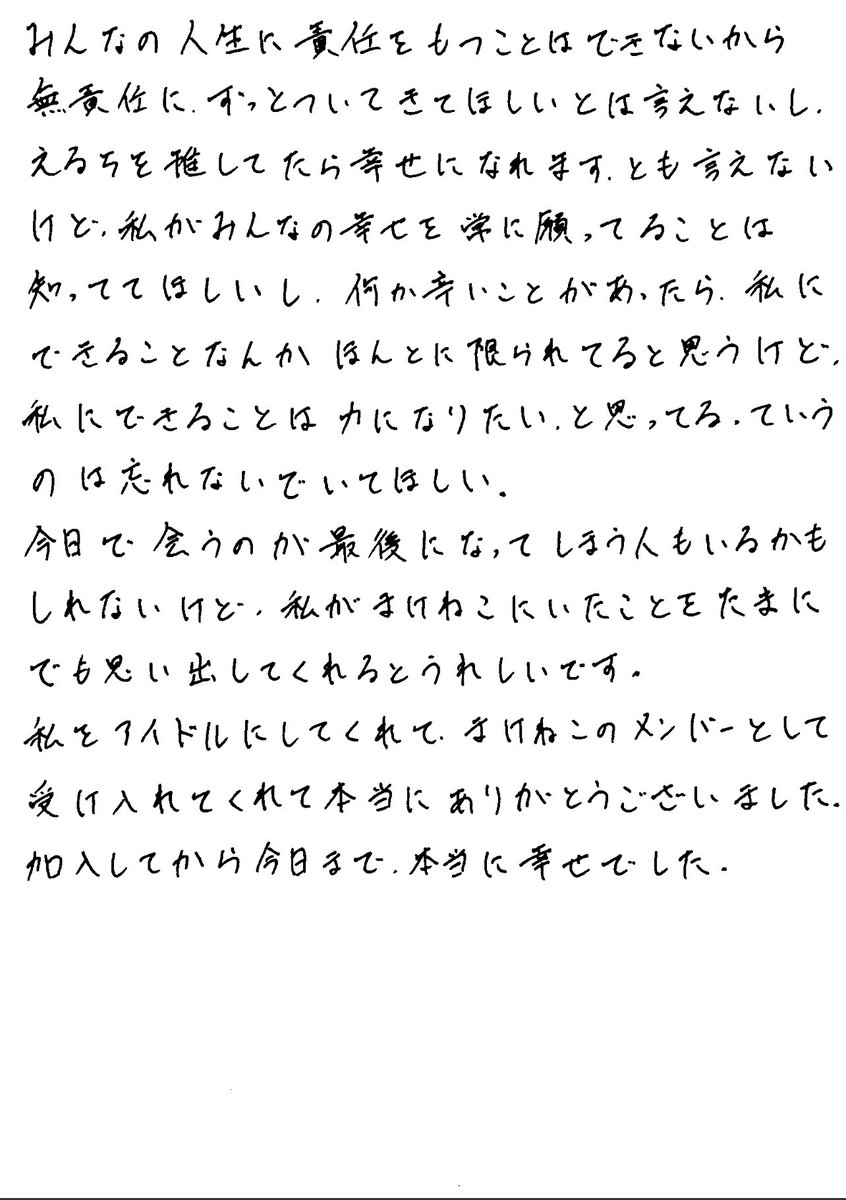 みんなの人生に責任をもつことはできないから
無責任に、ずっとついてきてほしいとは言えないし、
えるちを推してたら幸せになれます、とも言えない
けど、私がみんなの幸せを常に願ってることは
知っててほしいし、何か辛いことがあったら、私に
できることなんかほんとに限られてると思うけど、
私にできることは力になりたい、と思ってる、ていう
のは忘れないでいてほしい。
今日で会うのが最後になってしまう人もいるかも
しれないけど、私がまけねこにいたことをたまに
でも思い出してくれるとうれしいです。
私をアイドルにしてくれて、まけねこのメンバーとして
受け入れてくれて本当にありがとうございました。
加入してから今日まで、本当に幸せでした。